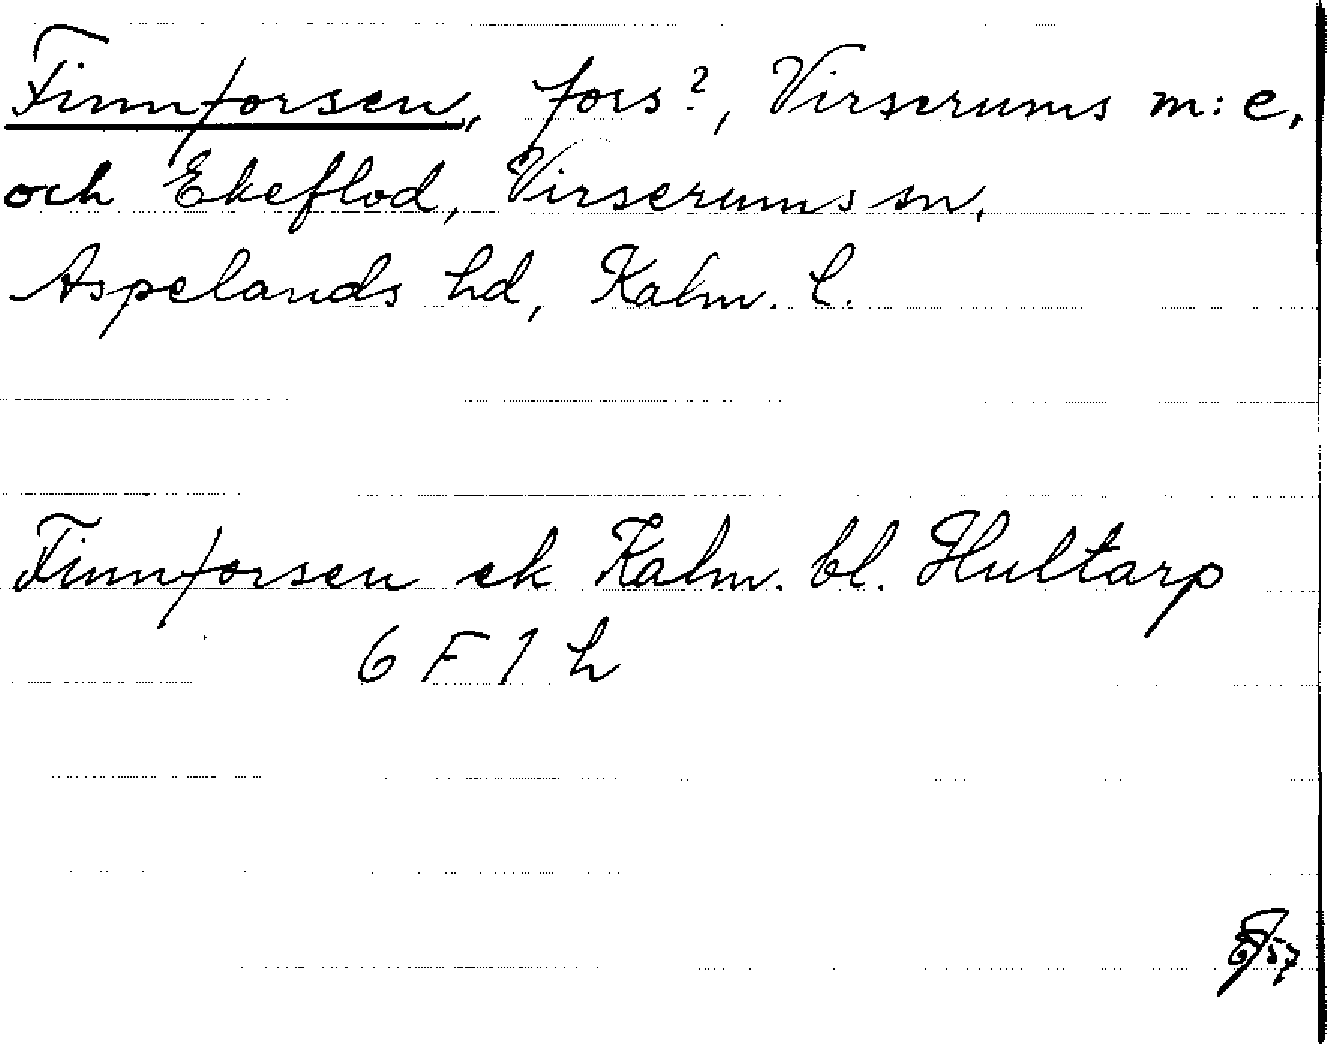 Finnforsen, fors?, Virserums m:e,
och Ekeflod, Virserums sn.
Aspelands hd, Kalm. l.
Finnforsen ek Kalm. bl. Hultarp
6 F 1 h